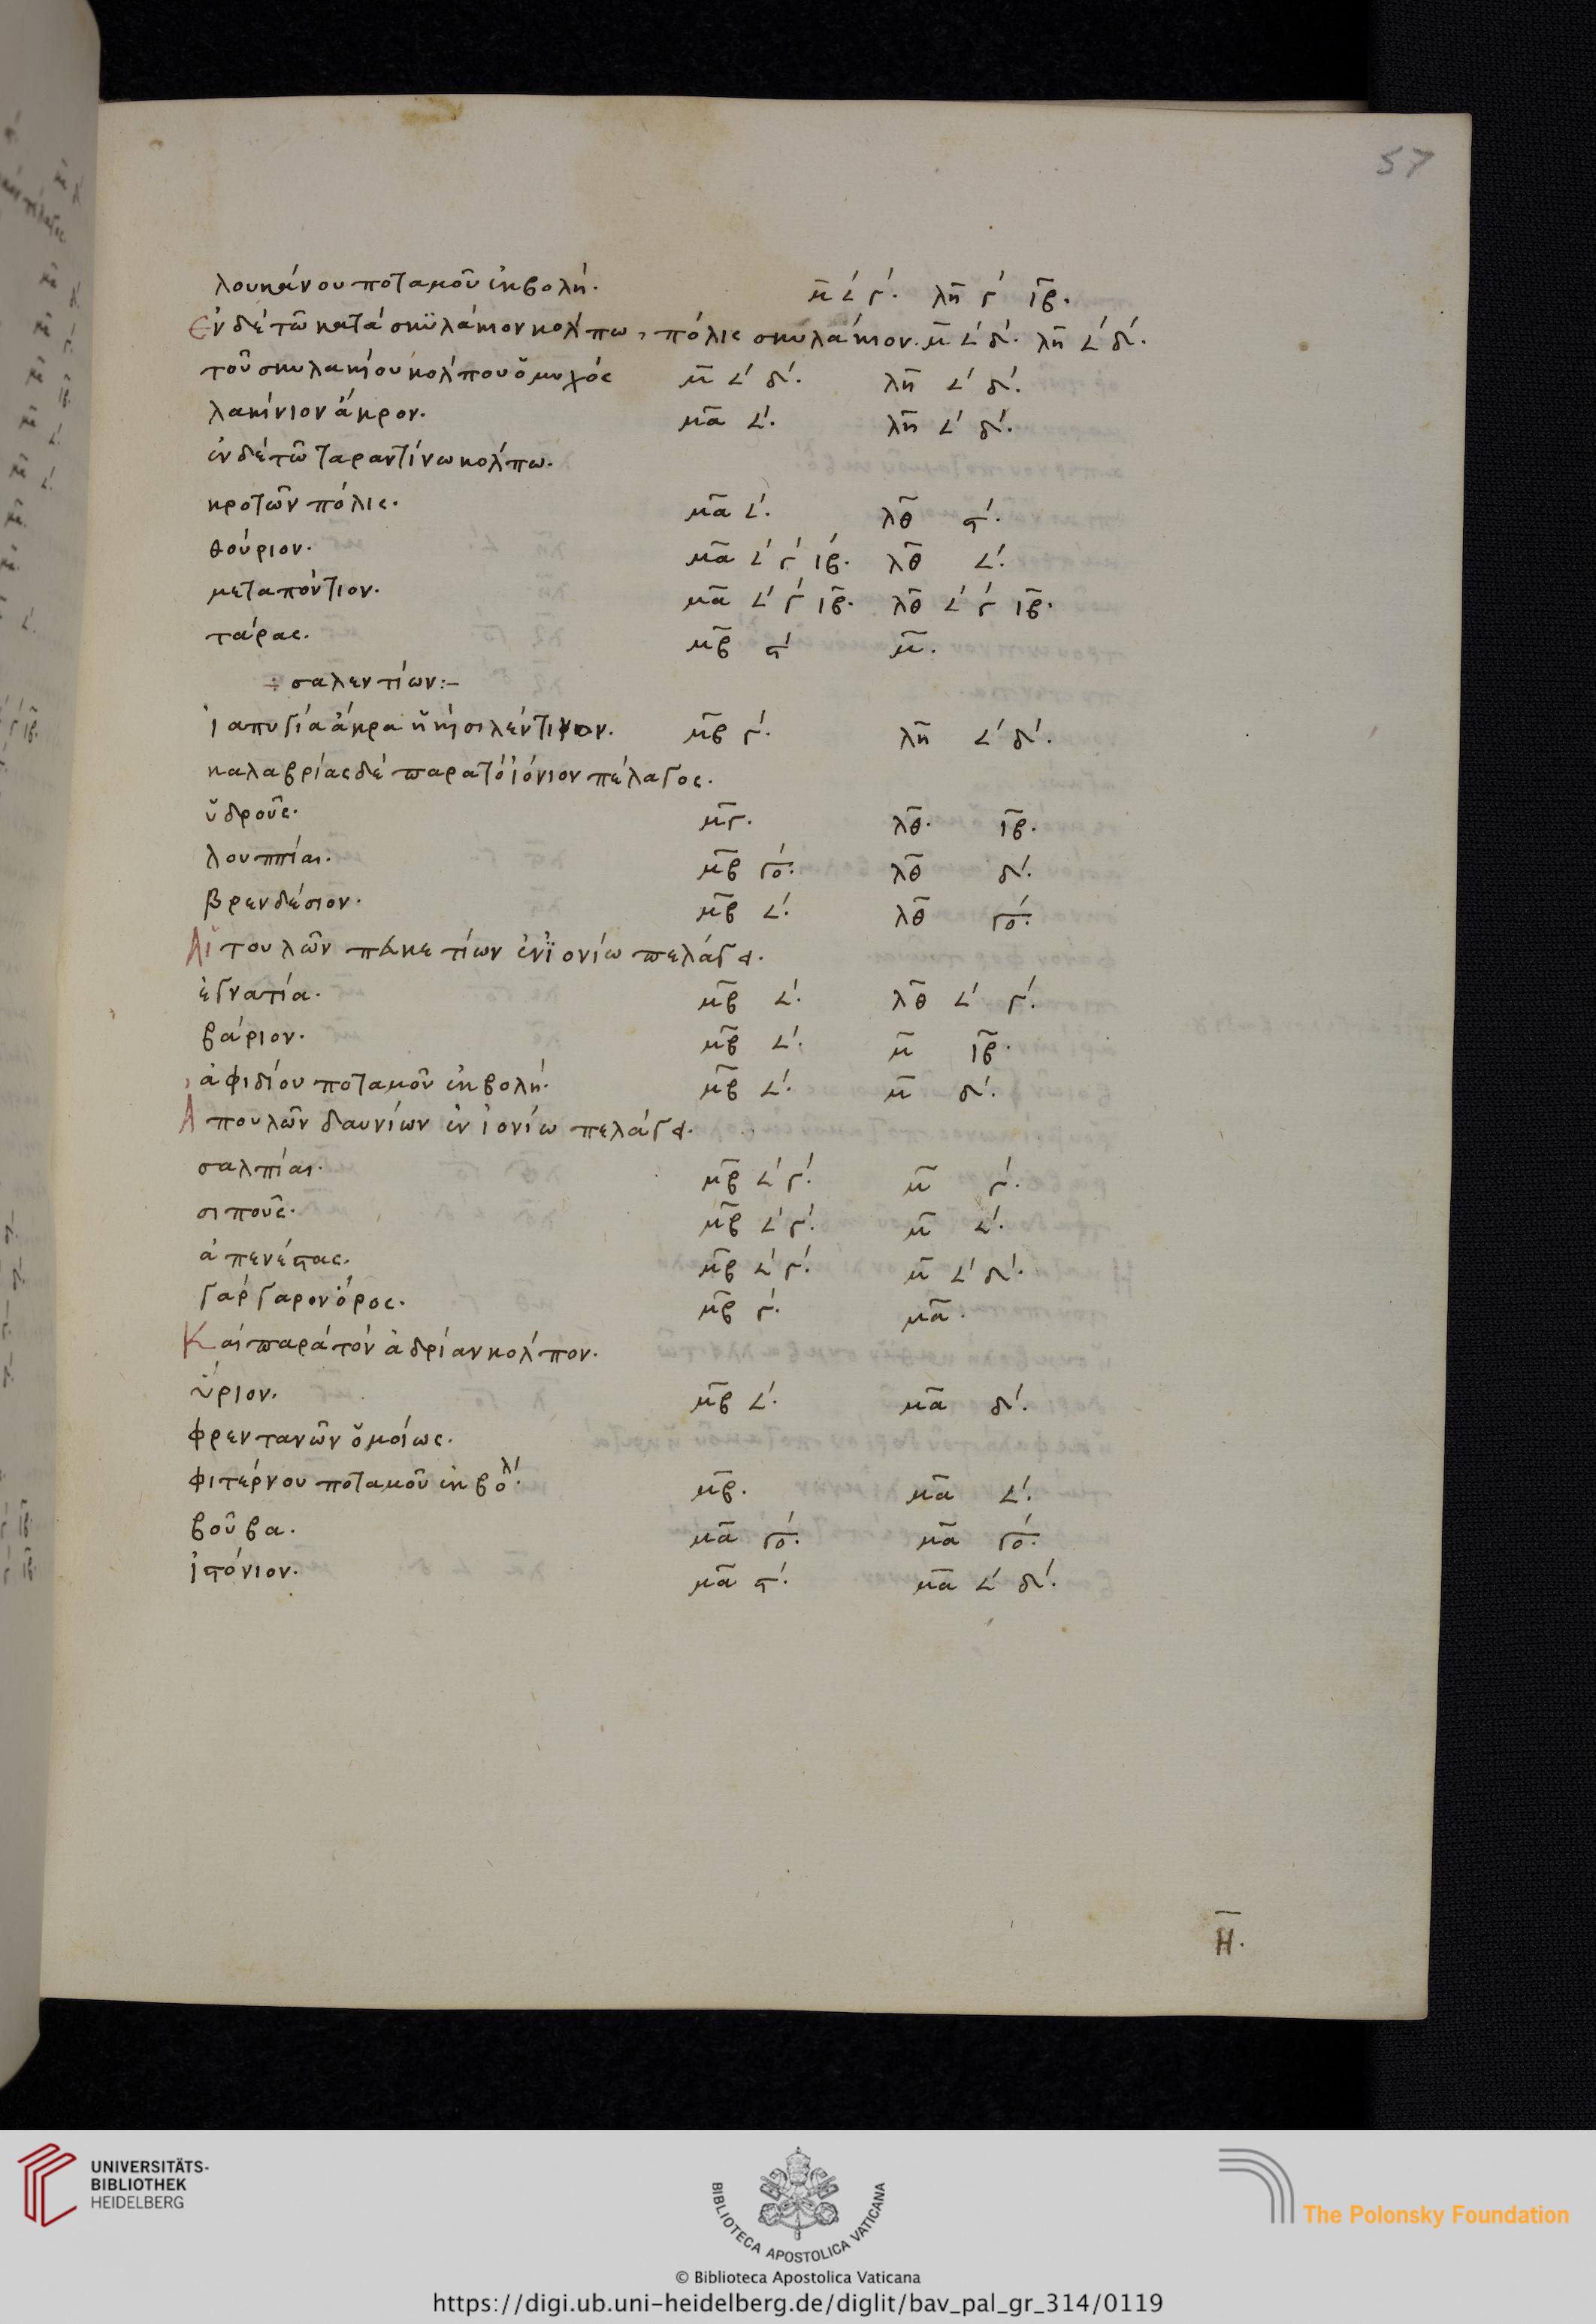 57
λουκάνου ποταμοῦ ἐκβολή. μ̄ ∠´ γ´. λη̄ γ´ ιβ̄.
Ἐν δὲ τῶ κατὰ σκϋλάκιον κόλπω, πόλις σκυλάκιον. μ̄ ∠´ δ´. λη̄ ∠´ δ´.
τοῦ σκυλακίου κόλπου ὁ μυχός μ̄ ∠´ δ´. λη̄ ∠´ δ´.
λακίνιον ἄκρον. μᾱ ∠´. λη̄ ∠´ δ´.
ἐν δὲ τῶ ταραντίνω κόλπω.
κροτῶν πόλις. μᾱ ∠´. λθ̄ ϛ´.
θούριον. μᾱ ∠´ γ´ ιβ̄. λθ̄ ∠´.
μεταπόντιον. μᾱ ∠´ γ´ ιβ̄. λθ̄ ∠´ γ´ ιβ̄.
τάρας. μβ̄ ϛ´ μ̄.
÷ σαλεντίων:–
ἰαπυγία ἄκρα ἣ κὶ σιλέντινον. μβ̄ γ´. λη̄ ∠´ δ´.
καλαβρίας δὲ παρὰ τὸ ἰόνιον πέλαγος.
ὑδροῦς. μγ̄. λθ̄. ιβ̄.
λουππίαι. μβ̄ γό. λθ̄ δ´.
βρενδέσιον. μβ̄ ∠´. λθ̄ γό.
Ἀϊτουλῶν πευκετίων ἐν ϊονίω πελάγει.
ἐγνατία. μβ̄ ∠´. λθ̄ ∠´ γ´.
βάριον. μβ̄ ∠´. μ̄ ιβ̄.
ἀφιδίου ποταμοῦ ἐκβολή. μβ̄ ∠´. μ̄ δ´.
Ἀπουλῶν δαυνίων ἐν ἰονίω πελάγει.
σαλπίαι. μβ̄ ∠´ γ´. μ̄ γ´.
σιποῦς. μβ̄ ∠´ γ´. μ̄ ∠´.
ἀπενέστας. μβ̄ ∠´ γ´. μ̄ ∠´ δ´.
γάργαρον ὄρος. μβ̄ γ´. μᾱ.
Καὶ παρὰ τὸν ἀδρίαν κόλπον.
ὕριον. μβ̄ ∠´. μᾱ δ´.
φρεντανῶν ὁμοίως.
φιτέρνου ποταμοῦ ἐκβολ´. μβ̄. μᾱ ∠´.
βοῦβα. μᾱ γό. μᾱ γό.
ἱστόνιον. μᾱ ϛ´. μᾱ ∠´ δ´.
Η̄.
UNIVERSITÄTS-
BIBLIOTHEK
HEIDELBERG
BIBLIOTECA APOSTOLICA VATICANA
The Polonsky Foundation
© Biblioteca Apostolica Vaticana
https://digi.ub.uni-heidelberg.de/diglit/bav_pal_gr_314/0119